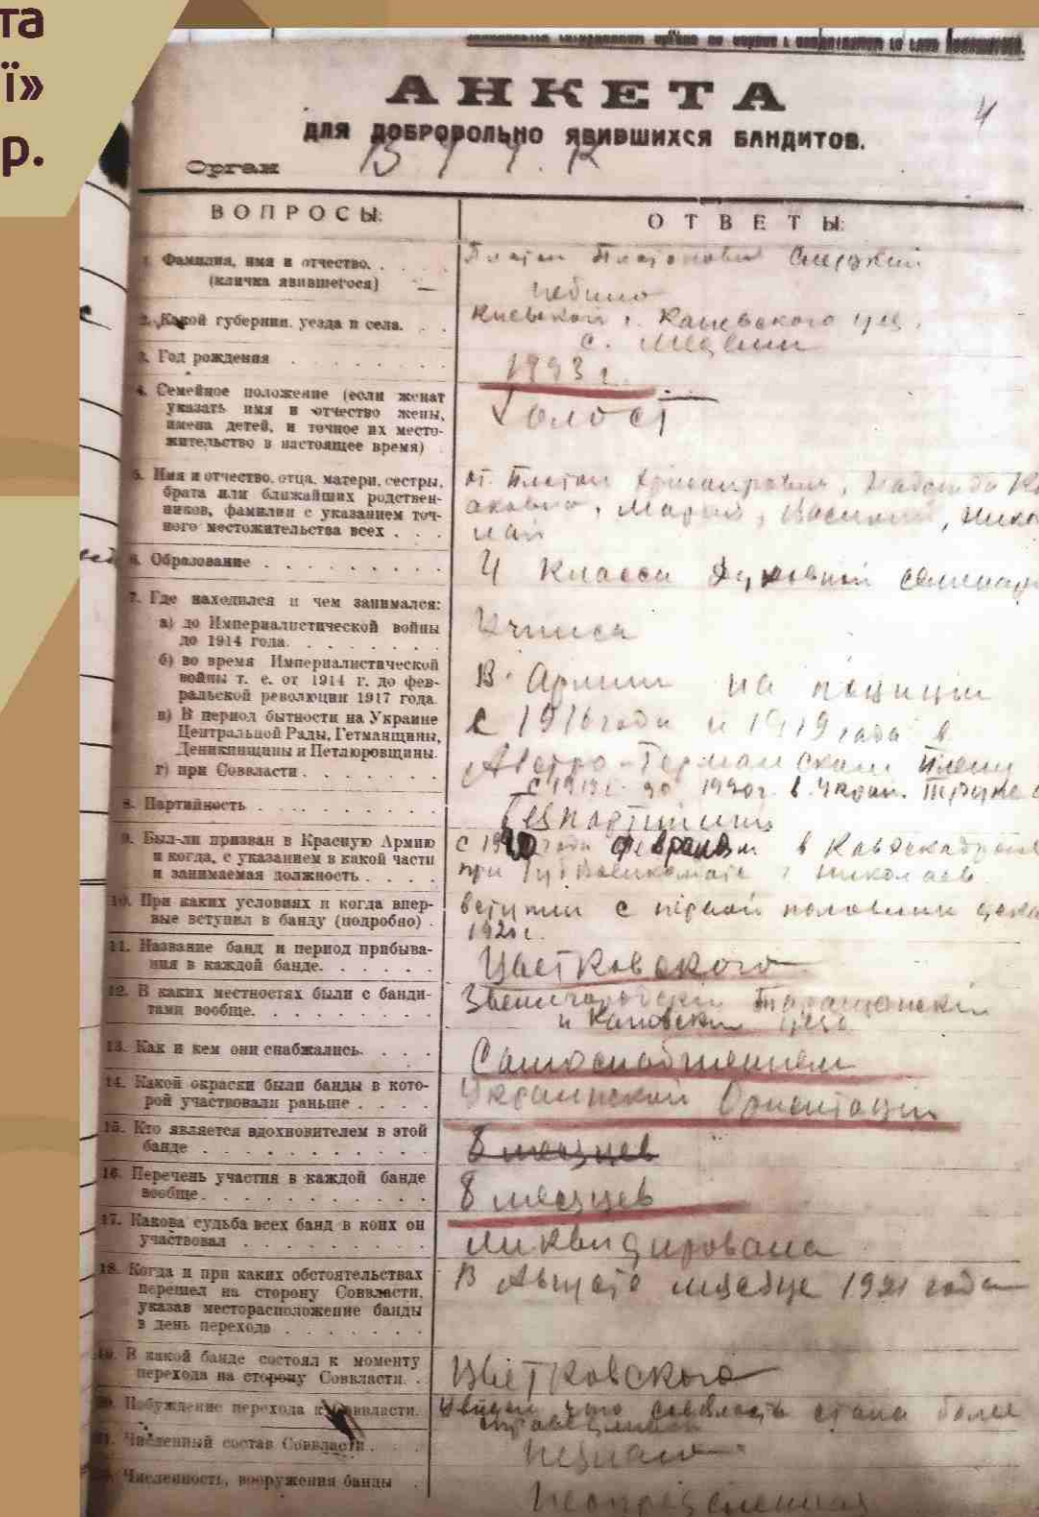 та
ї»
р.
4
АНКЕТА
для добровольно явившихся бандитов.
Орган
ВОПРОСЫ:
ОТВЕТЫ:
1. Фамилия, имя и отчество. .
(кличка явившегося)
Платон Платонович
2. Какой губернии, уезда и села. . .
Киевской г. Каневского уез.
с.
3. Год рождения . . . . . . .
4. Семейное положение (если женат
указать имя и отчество жены,
имена детей, и точное их место-
жительство в настоящее время)
Холост
5. Имя и отчество, отца, матери, сестры,
брата или ближайших родствен-
ников, фамилии с указанием точ-
ного местожительства всех . . .
от. Платон
Мария, Василий, Нико
лай
6. Образование . . . . . . . . .
4 класса Духовной семинар
7. Где находился и чем занимался:
а) до Империалистической войны
до 1914 года. . . . . . . .
Учился
б) во время Империалистической
войны т. е. от 1914 г. до фев-
ральской революции 1917 года.
В Армии на позиции
в) В период бытности на Украине
Центральной Рады, Гетманщины,
Деникинщины и Петлюровщины.
с 1916 года и 1919 года в
Австро-Германском плену
г) при Соввласти . . . . . . .
8. Партийность . . . . . . . . .
Безпартийный
9. Был-ли призван в Красную Армию
и когда, с указанием в какой части
и занимаемая должность . . . .
февраля в
при Губвоенкомате г Николаев
10. При каких условиях и когда впер-
вые вступил в банду (подробно) .
вступил с первой половины дека
11. Название банд и период прибыва-
ния в каждой банде. . . . . .
Цветковского
12. В каких местностях были с банди-
тами вообще. . . . . . . . .
Звенигородский Таращанский
и Каневский уезд
13. Как и кем они снабжались. . . .
Самоснабжением
14. Какой окраски были банды в кото-
рой участвовали раньше . . . .
Украинской Ориентации
15. Кто является вдохновителем в этой
банде . . . . . . . . . . .
8 месяцев
16. Перечень участия в каждой банде
вообще. . . . . . . . . . .
8 месяцев
17. Какова судьба всех банд в коих он
участвовал . . . . . . . . .
Ликвидирована
18. Когда и при каких обстоятельствах
перешел на сторону Соввласти,
указав месторасположение банды
в день перехода . . . . . . .
В Августе месяце 1921 года
19. В какой банде состоял к моменту
перехода на сторону Соввласти. .
Цветковского
20. Побуждение перехода к Соввласти.
Увидел что соввласть стала более
21. Численный состав Соввласти . . .
незнаю
22. Численность, вооружения банды .